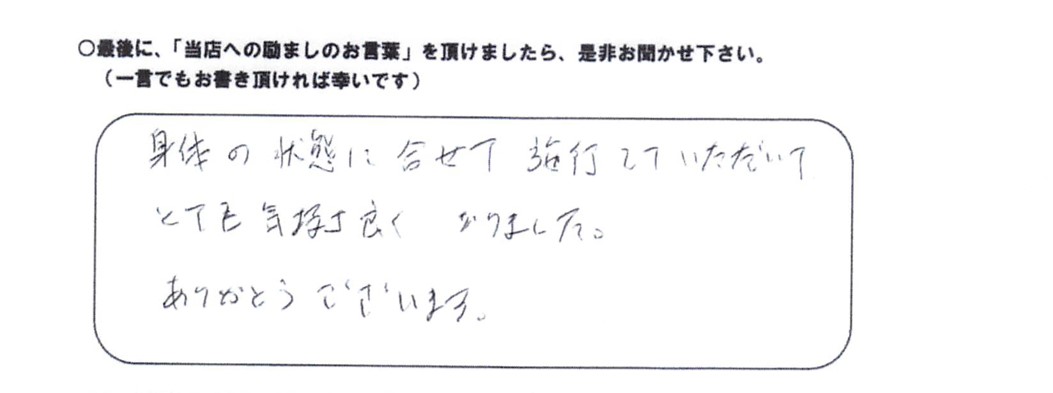 ○最後に、「当店への励ましのお言葉」を頂けましたら、是非お聞かせ下さい。
（一言でもお書き頂ければ幸いです）
身体の状態に合せて施行していただいて
とても気持ち良くなりました。
ありがとうございます。